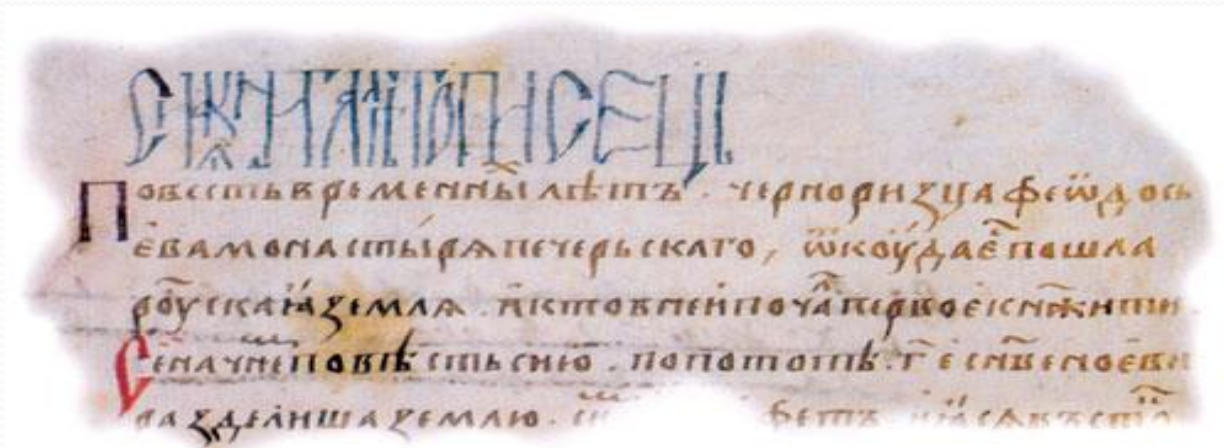 ЛѢТОПИСЕЦЬ
Повесть временны̾ лѣтъ · черноризца феѡдось
ева монастырѧ печерьскаго, ѿкоуда е҇ пошла
роускаꙗ землѧ · и кто в неи поча̾ первое кнѧжити
Се начне повѣсть сию · по потопѣ · г҃ е сн҃ве ноеви
разделиша землю · фетъ · ꙗсѧ въсто